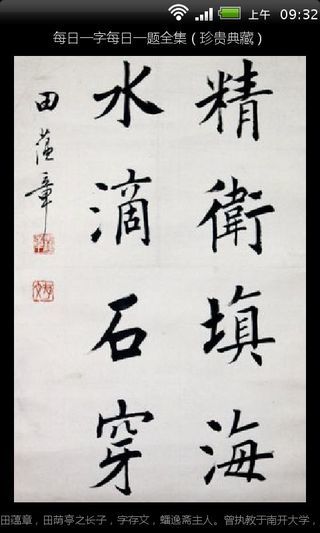 上午 09:32
每日一字每日一题全集（珍贵典藏）
精衛填海
水滴石穿
田蕴章
田蕴章，田荫亭之长子，字存文，蟫逸斋主人。曾执教于南开大学，